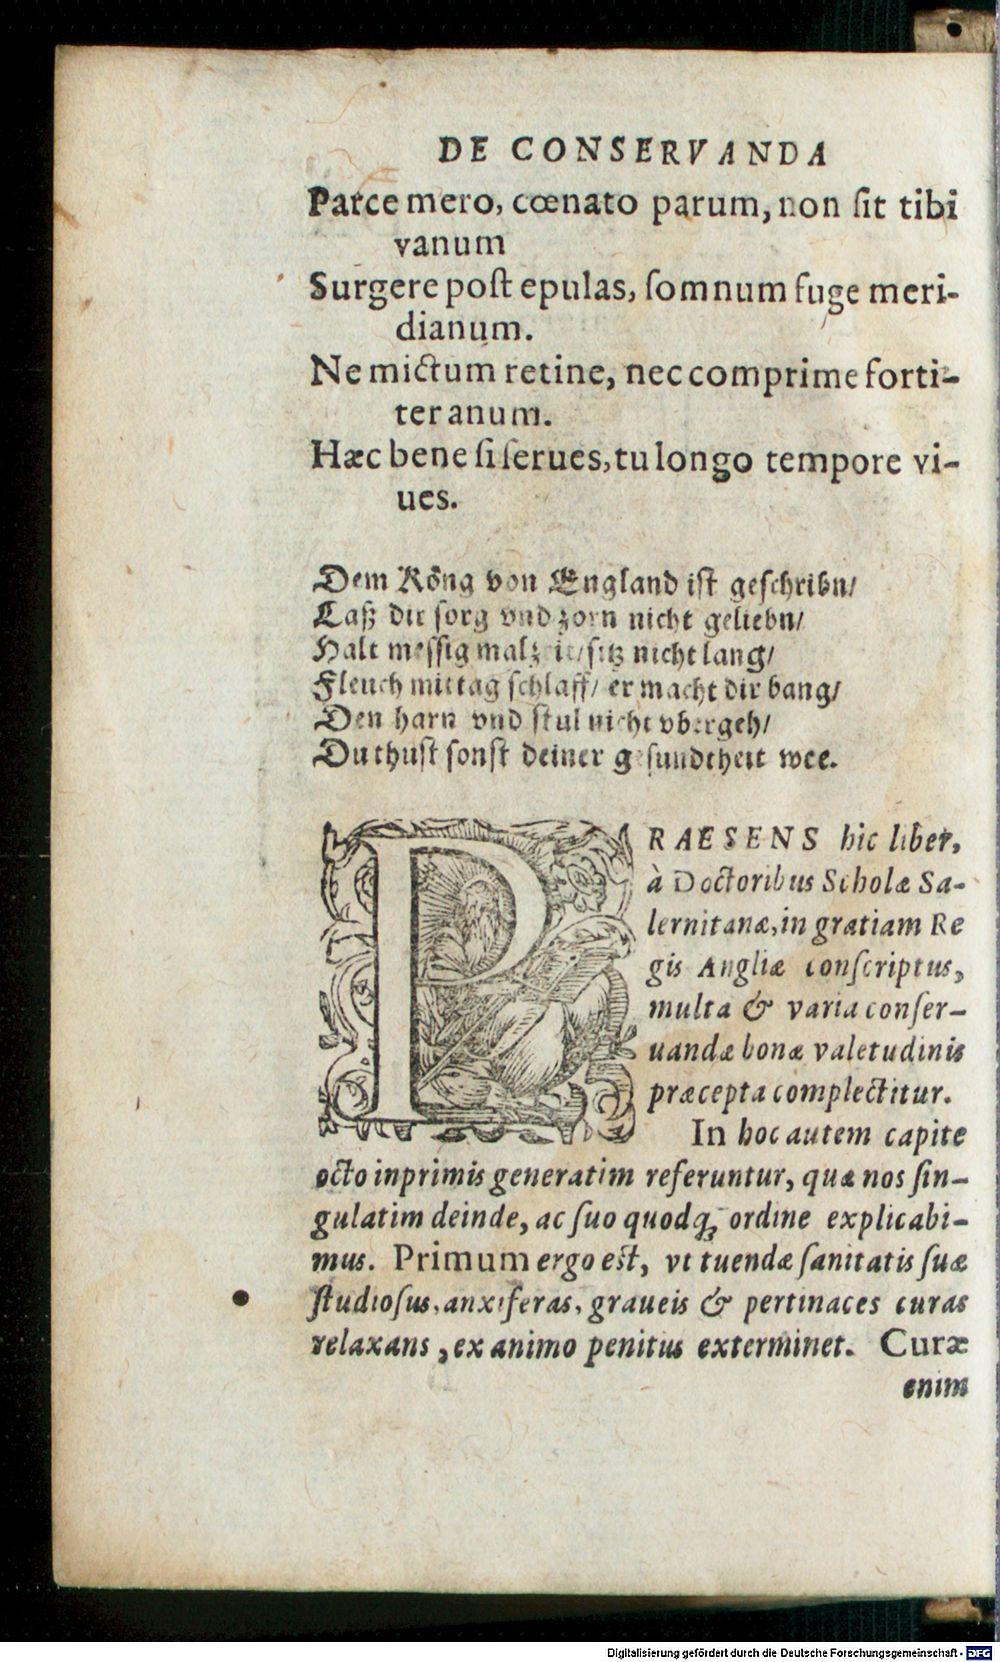 DE CONSERVANDA
Parce mero, cœnato parum, non sit tibi
vanum
Surgere post epulas, somnum fuge meri-
dianum.
Ne mictum retine, nec comprime forti-
ter anum.
Hæc bene si serues, tu longo tempore vi-
ues.
Dem Köng von England ist geschribn/
Laß dir sorg vnd zorn nicht geliebn/
Halt messig malzeit/ sitz nicht lang/
Fleuch mittag schlaff/ er macht dir bang/
Den harn vnd stul nicht vbergeh/
Du thust sonst deiner gesundtheit wee.
PRAESENS hic liber,
à Doctoribus Scholæ Sa-
lernitanæ, in gratiam Re
gis Angliæ conscriptus,
multa & varia conser-
uandæ bonæ valetudinis
præcepta complectitur.
In hoc autem capite
octo inprimis generatim referuntur, quæ nos sin-
gulatim deinde, ac suo quodq; ordine explicabi-
mus. Primum ergo est, vt tuendæ sanitatis suæ
studiosus, anxiferas, graueis & pertinaces curas
relaxans, ex animo penitus exterminet. Curæ
enim
Digitalisierung gefördert durch die Deutsche Forschungsgemeinschaft - DFG